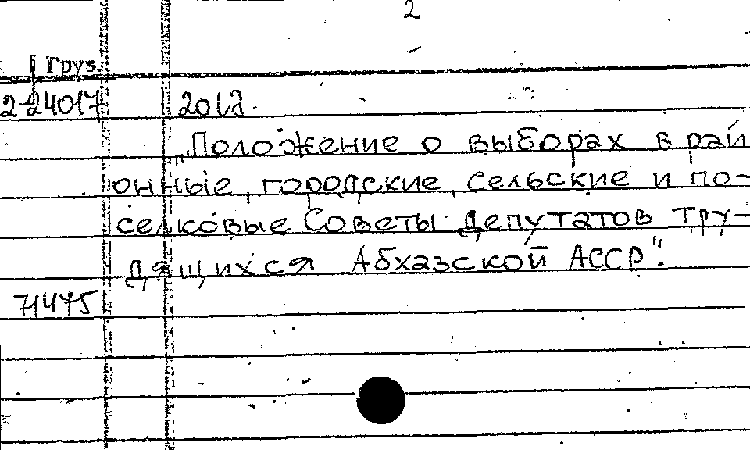 2
Груз.
2-24017 2012.
„Положение о выборах в рай
онные, городские, сельские и по-
селковые Советы депутатов тру-
дящихся Абхазской АССР".
71475